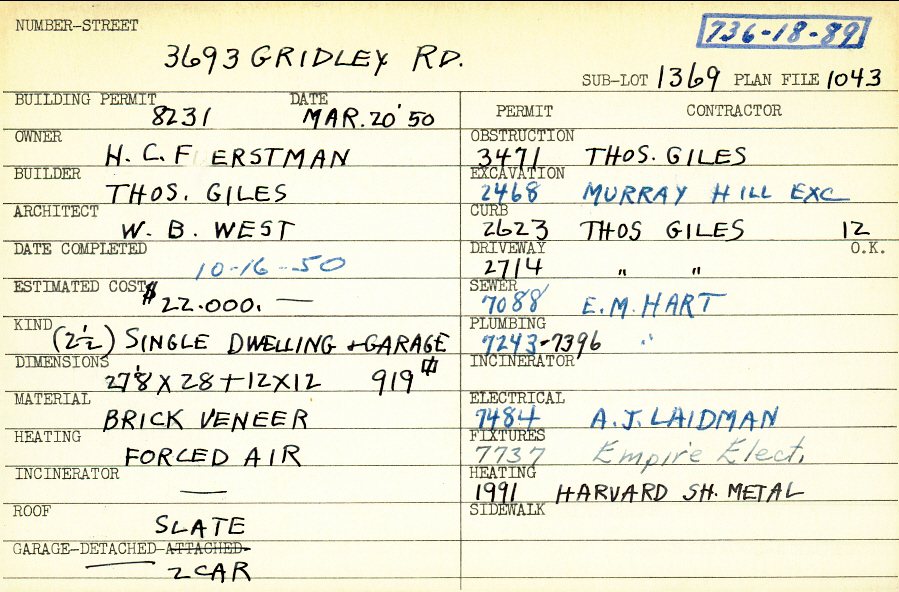 NUMBER-STREET
736-18-89
3693 GRIDLEY RD.
SUB-LOT 1369 PLAN FILE 1043
BUILDING PERMIT DATE
8231 MAR. 20' 50
OWNER
H. C. F ERSTMAN
BUILDER
THOS. GILES
ARCHITECT
W. B. WEST
DATE COMPLETED
10-16-50
ESTIMATED COST
$22.000. —
KIND
(2½) SINGLE DWELLING + GARAGE
DIMENSIONS
27'8 X 28 + 12 X 12 919
MATERIAL
BRICK VENEER
HEATING
FORCED AIR
INCINERATOR
—
ROOF
SLATE
GARAGE-DETACHED-ATTACHED-
2 CAR
PERMIT CONTRACTOR
OBSTRUCTION
3471 THOS. GILES
EXCAVATION
2468 MURRAY HILL EXC
CURB
2623 THOS GILES 12
DRIVEWAY O.K.
2714 " "
SEWER
7088 E. M. HART
PLUMBING
7243-7396 "
INCINERATOR
ELECTRICAL
7484 A. J. LAIDMAN
FIXTURES
7737 Empire Elect.
HEATING
1991 HARVARD SH. METAL
SIDEWALK